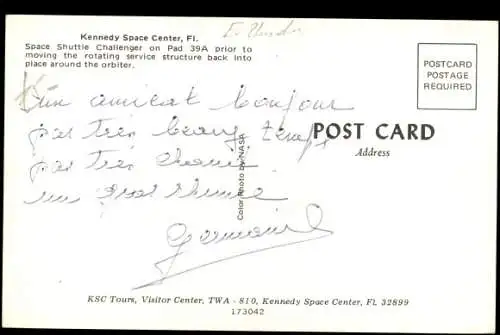 Kennedy Space Center, Fl.
Space Shuttle Challenger on Pad 39A prior to
moving the rotating service structure back into
place around the orbiter.
POSTCARD
POSTAGE
REQUIRED
Un amical bonjour
pas très beau temps
pas très chaud
un gros rhume
Germaine
POST CARD
Address
Color Photo by NASA
KSC Tours, Visitor Center, TWA - 810, Kennedy Space Center, FL 32899
173042